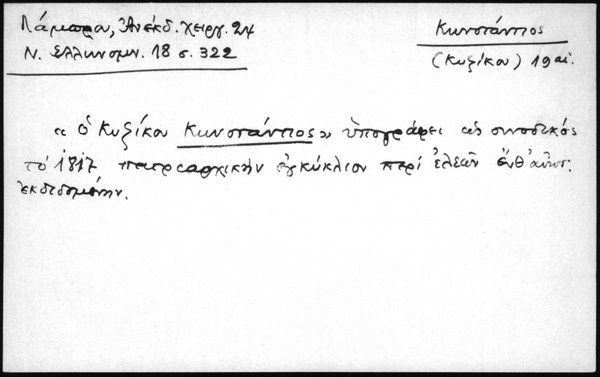 Λάμπρου, Ἀνέκδ. χειρ. 24
Ν. Ἑλληνομν. 18 σ. 322
Κωνστάντιος
(Κυζίκου) 19 αἰ.
« ὁ Κυζίκου Κωνστάντιος » ὑπογράφει ὡς συνοδικός
τό 1817 πατριαρχικήν ἐγκύκλιον περί ἐλεῶν
ἐκδεδομένην.